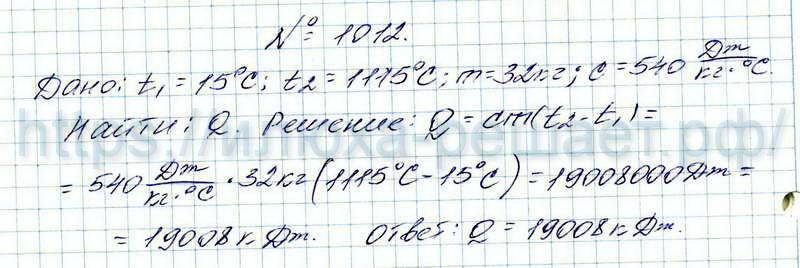 № 1012.
Дано: t₁ = 15°C; t₂ = 1115°C; m = 32кг; c = 540 Дж/кг·°C.
Найти: Q. Решение: Q = cm(t₂ - t₁) =
= 540 Дж/кг·°C · 32кг (1115°C - 15°C) = 19008000Дж =
= 19008кДж. Ответ: Q = 19008кДж.
https://илюха-решает.рф/